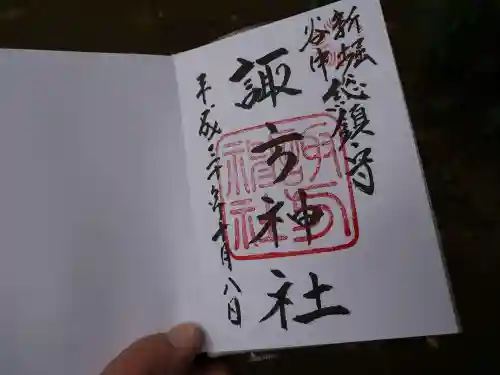 新堀
谷中
総鎮守
諏方神社
平成三十年十月八日
諏方神社